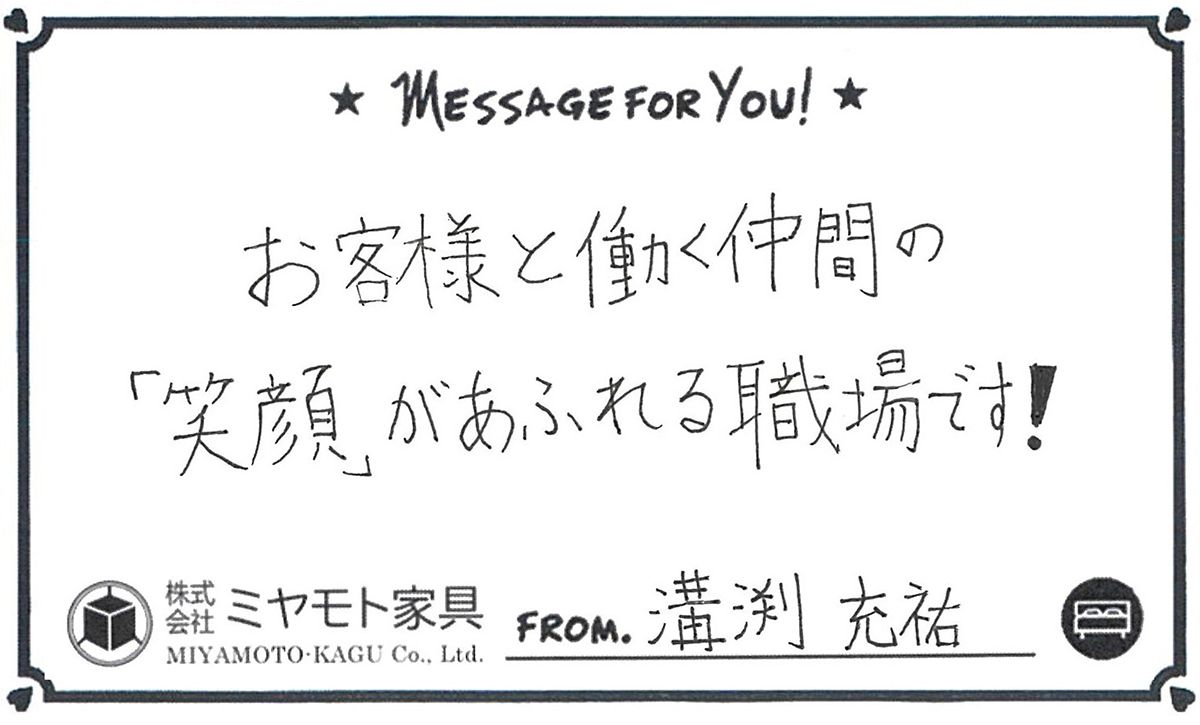 ★ MESSAGE FOR YOU! ★
お客様と働く仲間の
「笑顔」があふれる職場です!
株式会社 ミヤモト家具
MIYAMOTO-KAGU Co., Ltd.
FROM. 溝渕 充祐